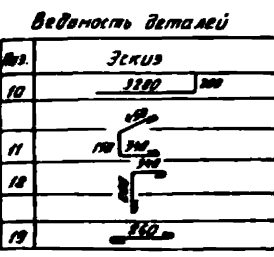 Ведомость деталей
Поз. Эскиз
10 3280 200
11 190 340
18 340
19 860